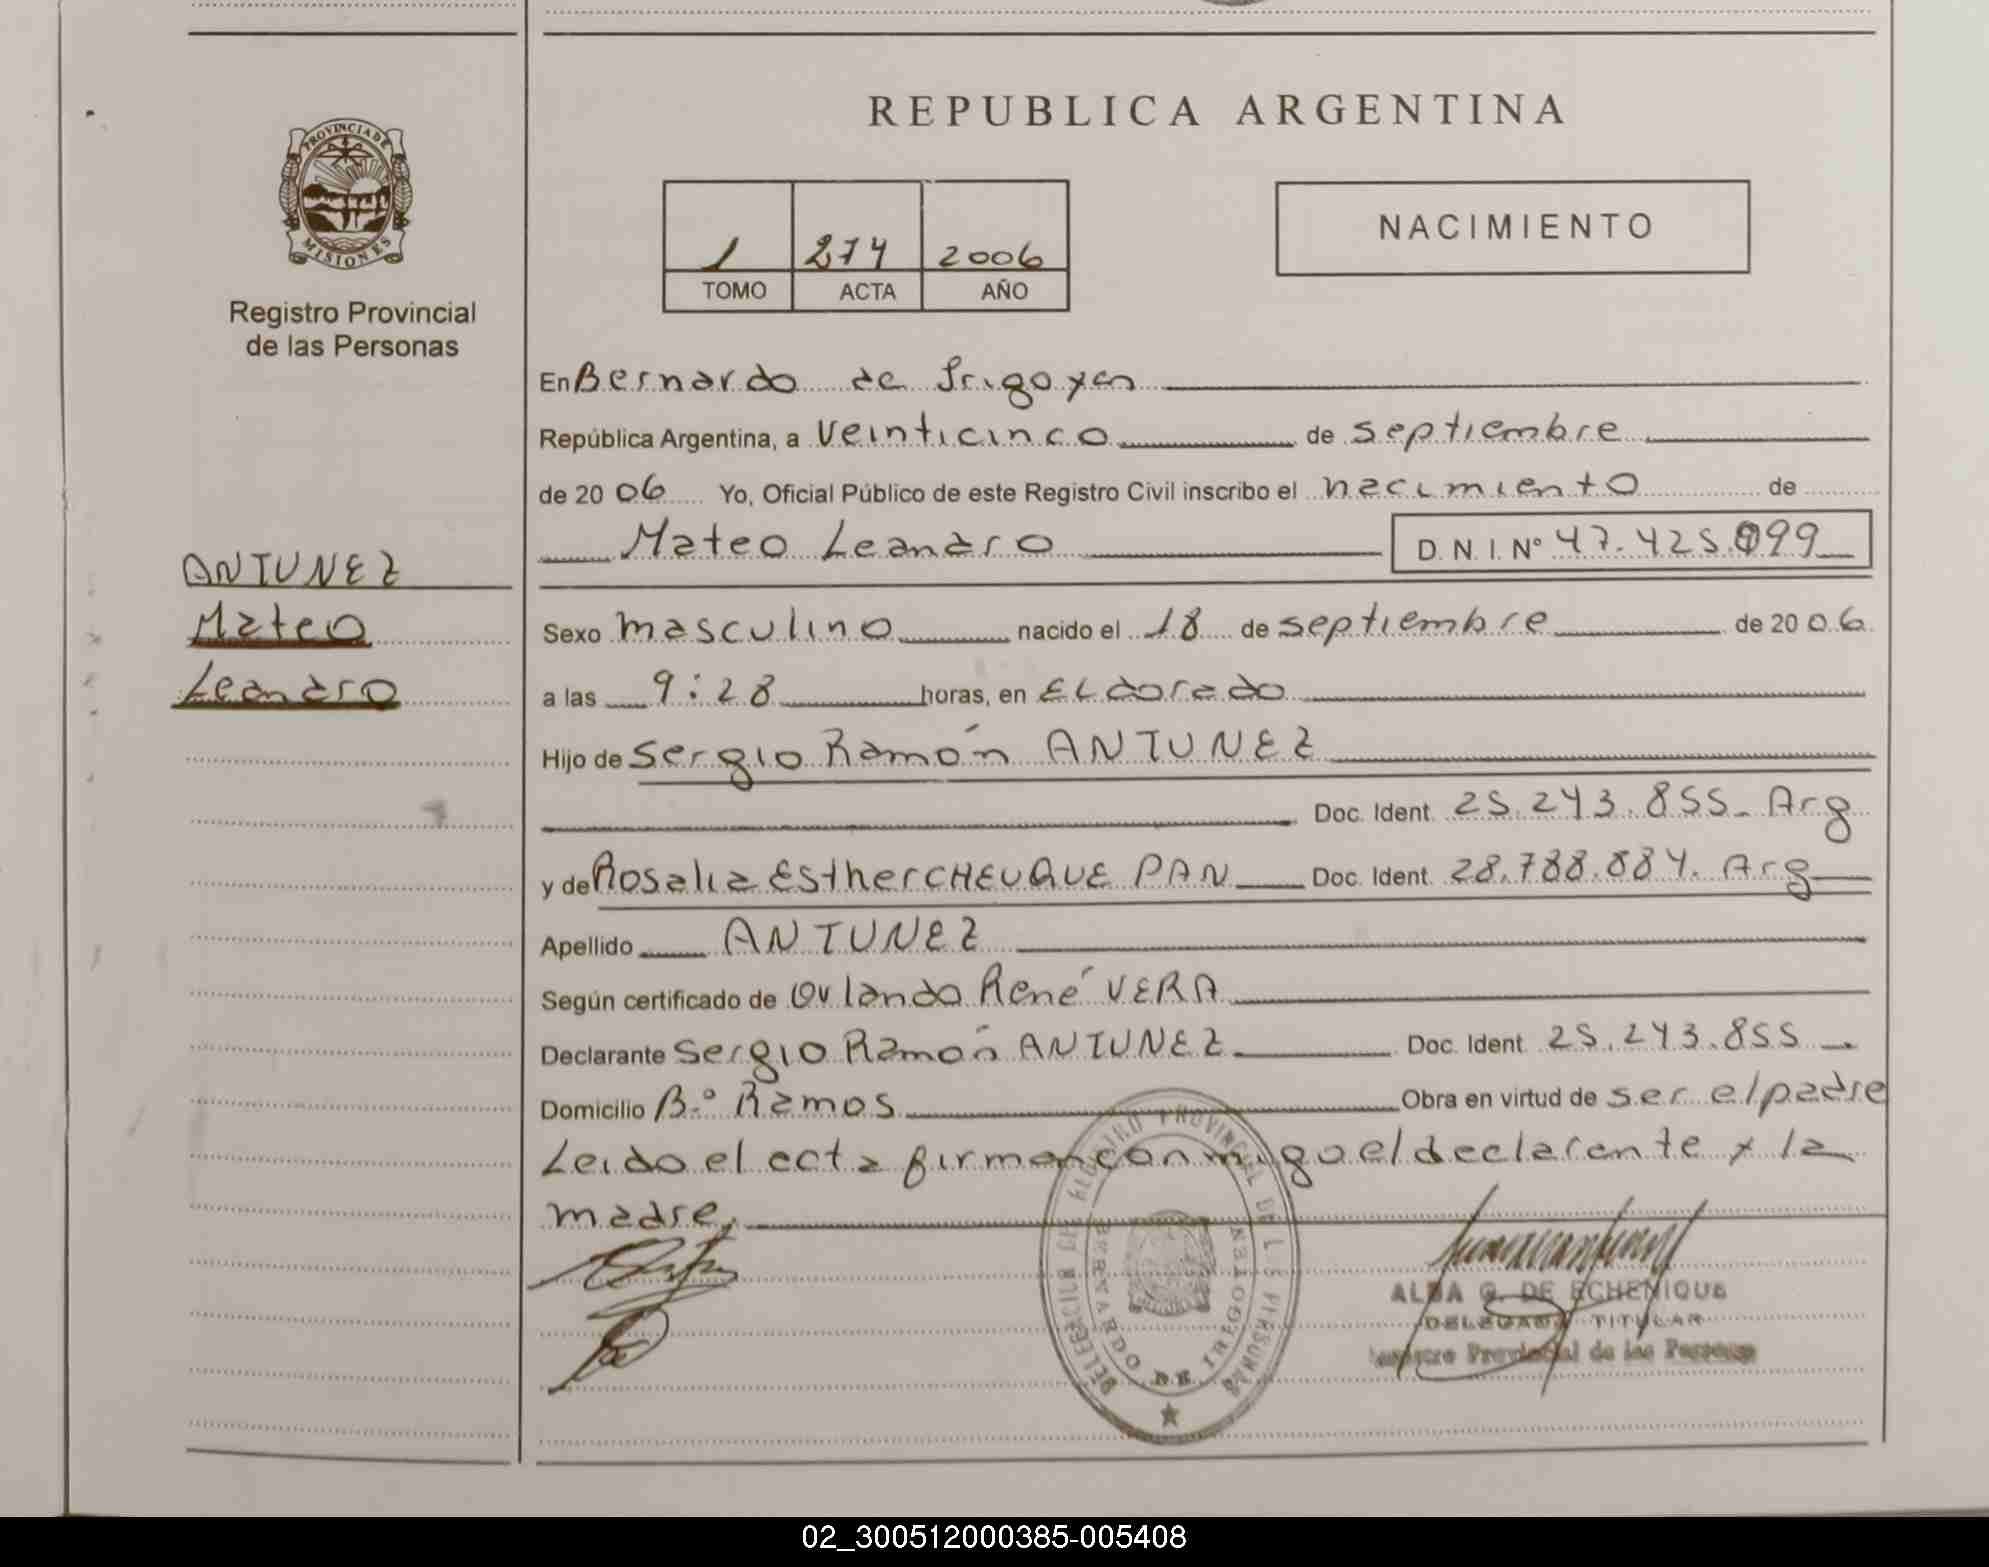 REPUBLICA ARGENTINA
PROVINCIA DE
MISIONES
Registro Provincial
de las Personas
1 274 2006
TOMO ACTA AÑO
NACIMIENTO
En Bernardo de Irigoyen
República Argentina, a Veinticinco de septiembre
de 2006 Yo, Oficial Público de este Registro Civil inscribo el nacimiento de
Mateo Leandro D. N. I. Nº 47.425.099
ANTUNEZ
Mateo
Leandro
Sexo masculino nacido el 18 de septiembre de 2006
a las 9:28 horas, en ELdorado
Hijo de Sergio Ramón ANTUNEZ
Doc. Ident. 25.243.855- Arg
y de Rosalia Esther CHEUQUE PAN Doc. Ident. 28.788.884. Arg
Apellido ANTUNEZ
Según certificado de Orlando René VERA
Declarante Sergio Ramón ANTUNEZ Doc. Ident 25.243.855
Domicilio B.º Ramos Obra en virtud de ser el padre
Leido el acta firman conmigo el declarante y la
madre,
DELEGACION DEL REGISTRO PROVINCIAL DE LAS PERSONAS
BERNARDO DE IRIGOYEN
ALBA G. DE ECHENIQUE
DELEGADA TITULAR
Registro Provincial de las Personas
02_300512000385-005408